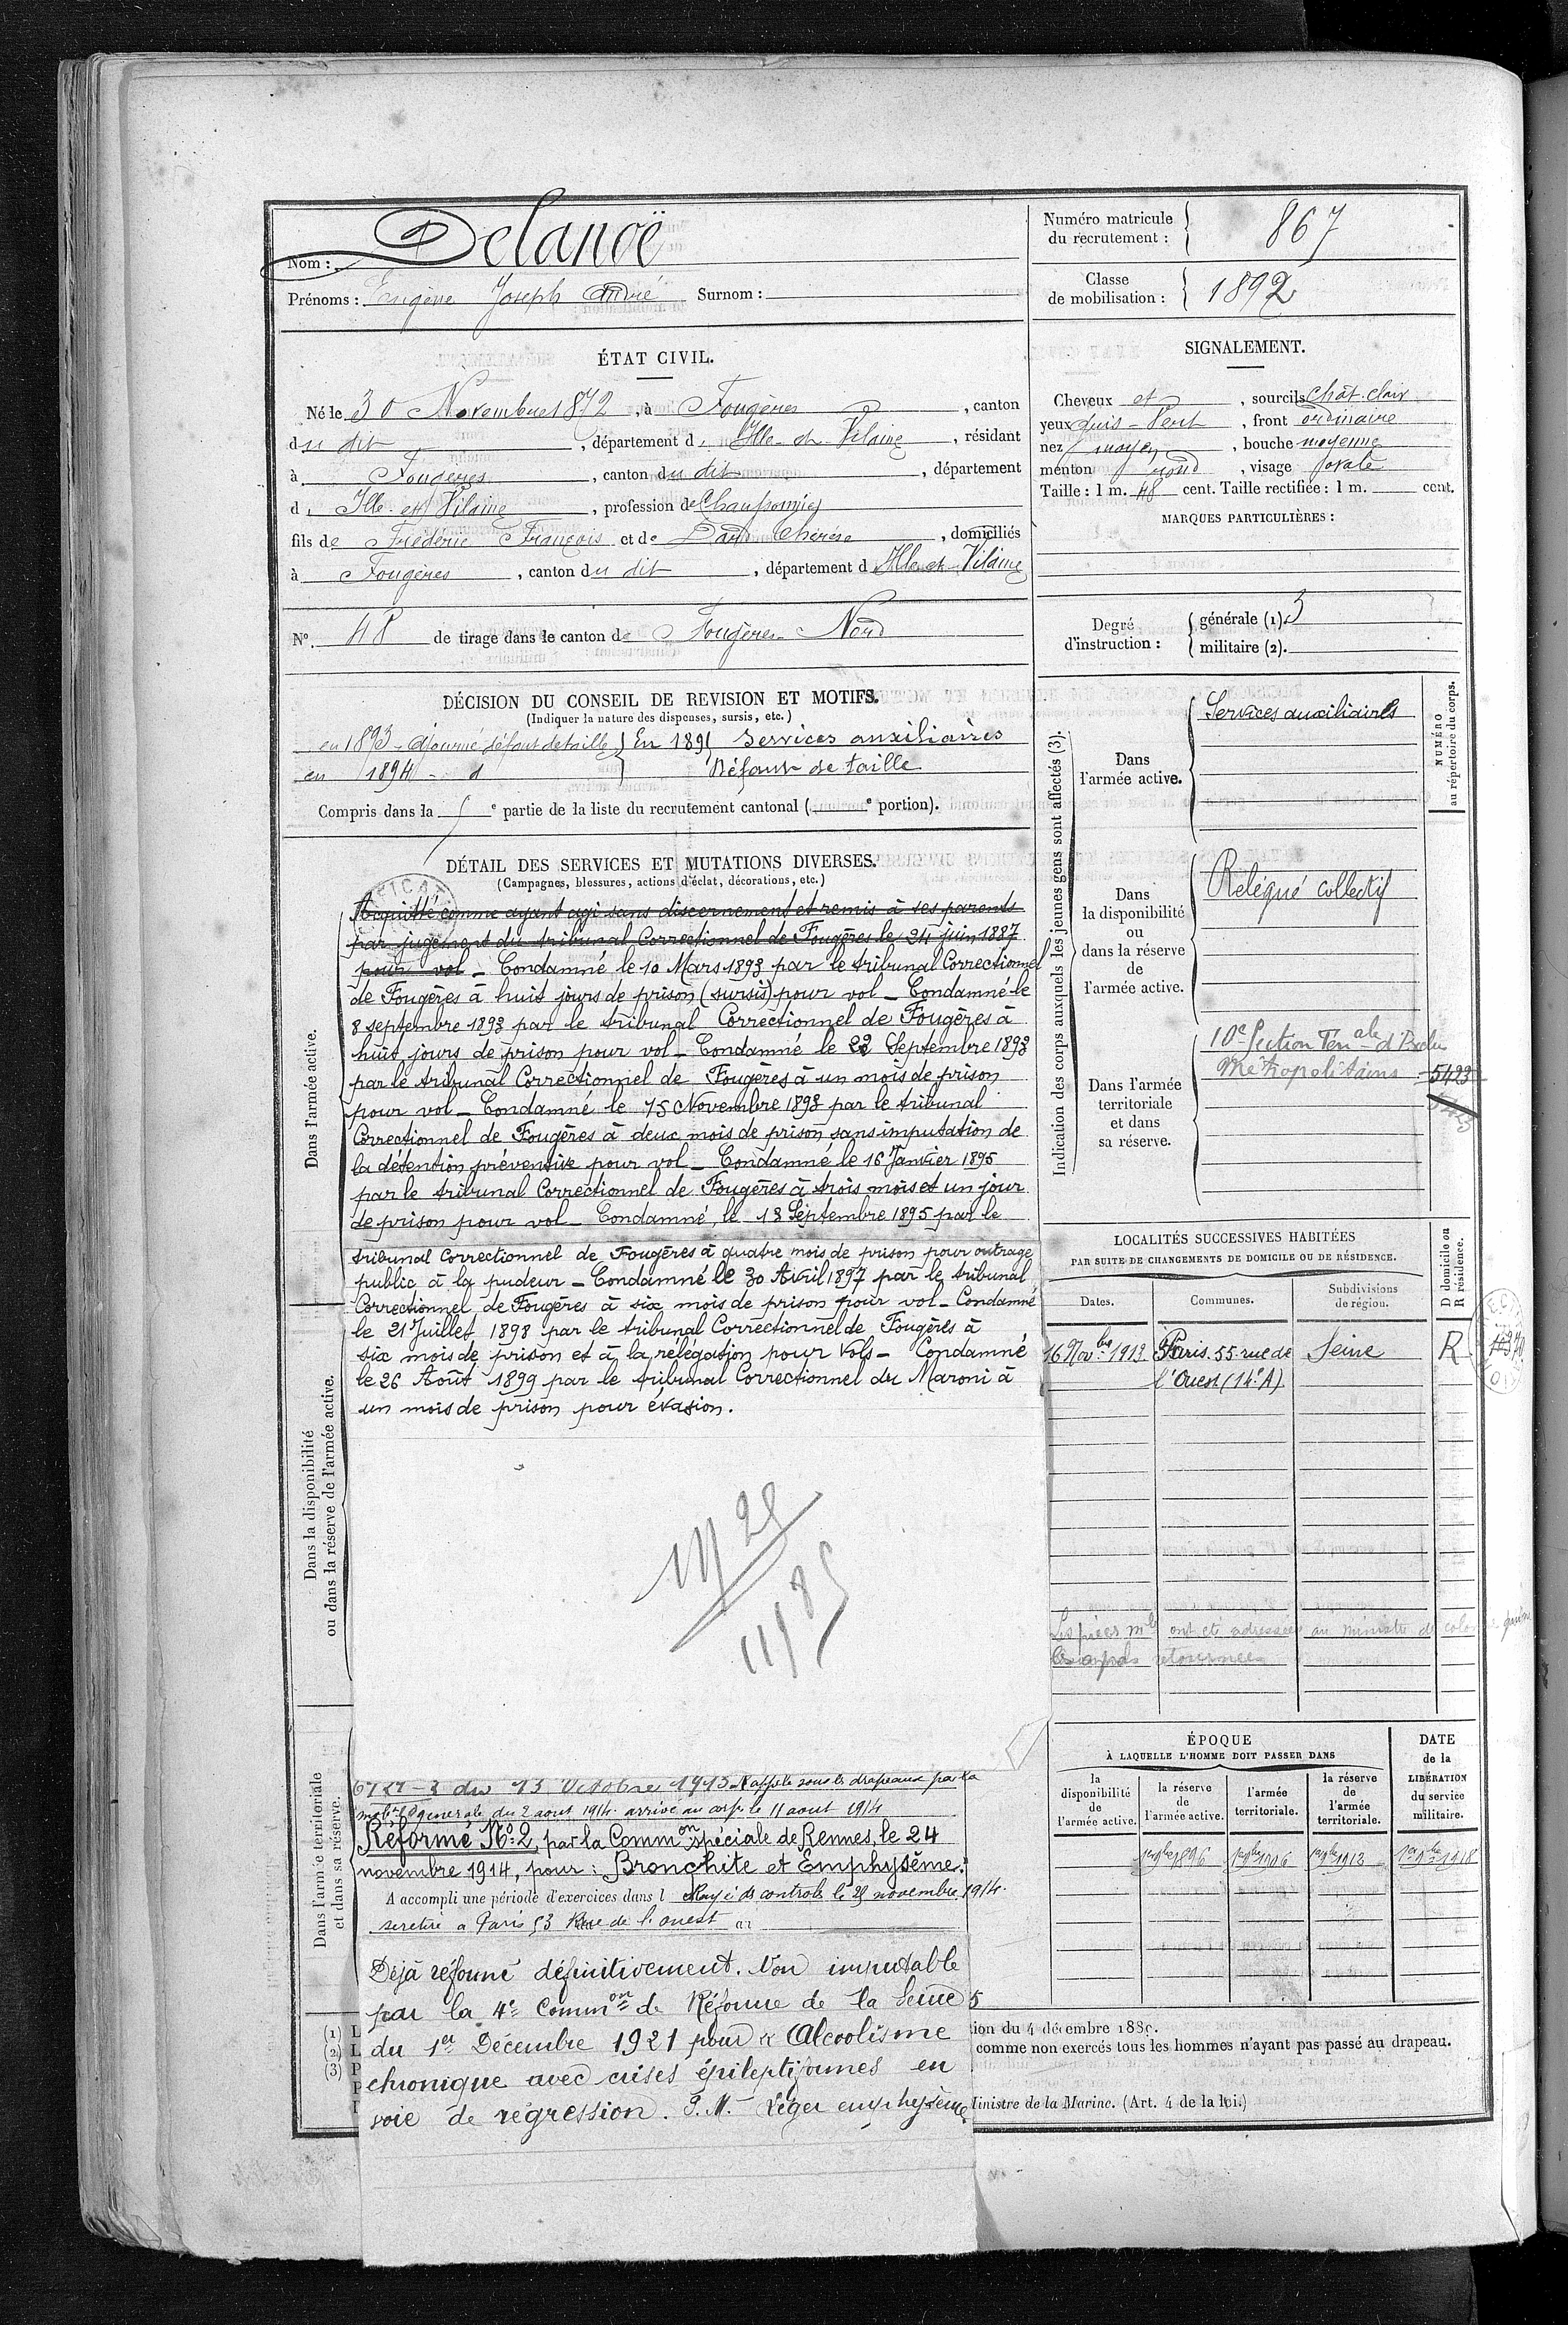 Nom : Delanoë
Prénoms : Eugène Joseph André Surnom :
Numéro matricule du recrutement : 867
Classe de mobilisation : 1892
ÉTAT CIVIL.
Né le 30 Novembre 1872, à Fougères, canton
du dit, département d. Ille-et-Vilaine, résidant
à Fougères, canton du dit, département
d. Ille-et-Vilaine, profession de
fils de Frédéric François et de Thérèse, domiciliés
à Fougères, canton du dit, département d Ille-et-Vilaine
N° 48 de tirage dans le canton de Fougères Nord
SIGNALEMENT.
Cheveux et, sourcils chât. clair
yeux gris-vert, front ordinaire
nez moyen, bouche moyenne
menton rond, visage ovale
Taille : 1 m. 48 cent. Taille rectifiée : 1 m. cent.
MARQUES PARTICULIÈRES :
Degré d'instruction :
générale (1). 3
militaire (2).
DÉCISION DU CONSEIL DE REVISION ET MOTIFS.
(Indiquer la nature des dispenses, sursis, etc.)
en 1893 - ajourné défaut de taille } En 1895 Services auxiliaires
en 1894 - d } Défaut de taille
Compris dans la 5 e partie de la liste du recrutement cantonal ( e portion).
DÉTAIL DES SERVICES ET MUTATIONS DIVERSES.
(Campagnes, blessures, actions d'éclat, décorations, etc.)
Dans l'armée active.
Acquitté comme ayant agi sans discernement et remis à ses parents
par jugement du tribunal Correctionnel de Fougères le 24 juin 1887
pour vol _ Condamné le 10 Mars 1893 par le tribunal Correctionnel
de Fougères à huit jours de prison (sursis) pour vol _ Condamné le
8 septembre 1893 par le tribunal Correctionnel de Fougères à
huit jours de prison pour vol _ Condamné le 22 Septembre 1893
par le tribunal Correctionnel de Fougères à un mois de prison
pour vol _ Condamné le 15 Novembre 1893 par le tribunal
Correctionnel de Fougères à deux mois de prison sans imputation de
la détention préventive pour vol _ Condamné le 16 Janvier 1895
par le tribunal Correctionnel de Fougères à trois mois et un jour
de prison pour vol _ Condamné, le 13 Septembre 1895 par le
tribunal Correctionnel de Fougères à quatre mois de prison pour outrage
public à la pudeur _ Condamné le 30 Avril 1897 par le tribunal
Correctionnel de Fougères à six mois de prison pour vol _ Condamné
le 21 Juillet 1898 par le tribunal Correctionnel de Fougères à
six mois de prison et à la rélégation pour vols _ Condamné
le 26 Août 1899 par le tribunal Correctionnel du Maroni à
un mois de prison pour évasion.
Dans la disponibilité
ou dans la réserve de l'armée active.
Dans l'armée territoriale
et dans sa réserve.
du 13 Octobre 1913 Rappelé sous les drapeaux par la
générale du 2 aout 1914 arrivé au corps le 11 aout 1914
Réformé No: 2, par la Common spéciale de Rennes, le 24
novembre 1914, pour : Bronchite et Emphysème.
A accompli une période d'exercices dans l Rayé ds controls le 25 novembre 1914.
se retire a Paris 53 Rue de l'ouest
Déjà réformé définitivement. Non imputable
par la 4e Common de Réforme de la Seine
du 1er Décembre 1921 pour Alcoolisme
chronique avec crises épileptiformes en
voie de régression. P.M. Léger emphysème
Indication des corps auxquels les jeunes gens sont affectés (3).
NUMÉRO
au répertoire du corps.
Dans l'armée active.
Services auxiliaires
Dans la disponibilité ou dans la réserve de l'armée active.
Rélégué collectif
Dans l'armée territoriale et dans sa réserve.
10e Section Terr ale d'Exclus
Métropolitains 5423
LOCALITÉS SUCCESSIVES HABITÉES
PAR SUITE DE CHANGEMENTS DE DOMICILE OU DE RÉSIDENCE.
Dates. Communes. Subdivisions de région. D domicile ou R résidence.
16 Novbre 1913 Paris. 55 rue de Seine R
l'Ouest (14e A)
Les pièces mles ont été adressées au ministre des colo
retournées
ÉPOQUE
À LAQUELLE L'HOMME DOIT PASSER DANS
la disponibilité de l'armée active.
la réserve de l'armée active.
l'armée territoriale.
la réserve de l'armée territoriale.
DATE de la LIBÉRATION du service militaire.
1er 9bre 1896 1er 9bre 1906 1er 9bre 1912 1er 9bre 1918
(1) L
(2) L
(3) P
tion du 4 décembre 1889.
comme non exercés tous les hommes n'ayant pas passé au drapeau.
Ministre de la Marine. (Art. 4 de la loi.)